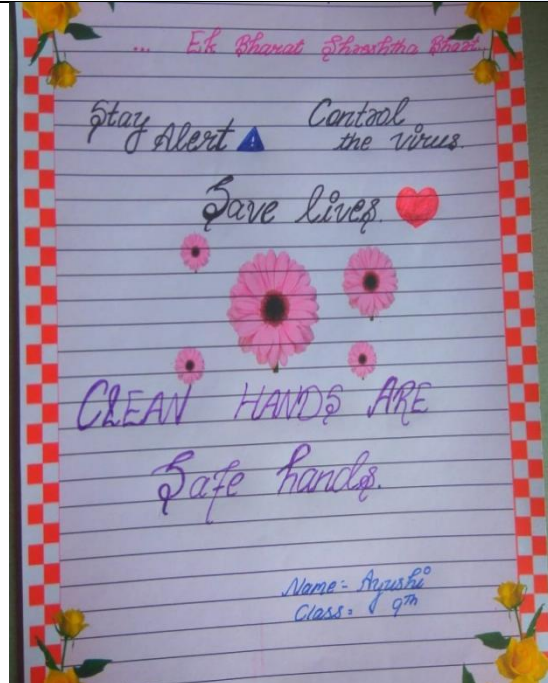 ... Ek Bharat Shreshtha Bharat.
Stay Alert
Control the virus.
Save lives.
CLEAN HANDS ARE
Safe hands.
Name:- Ayushi
Class:- 9th